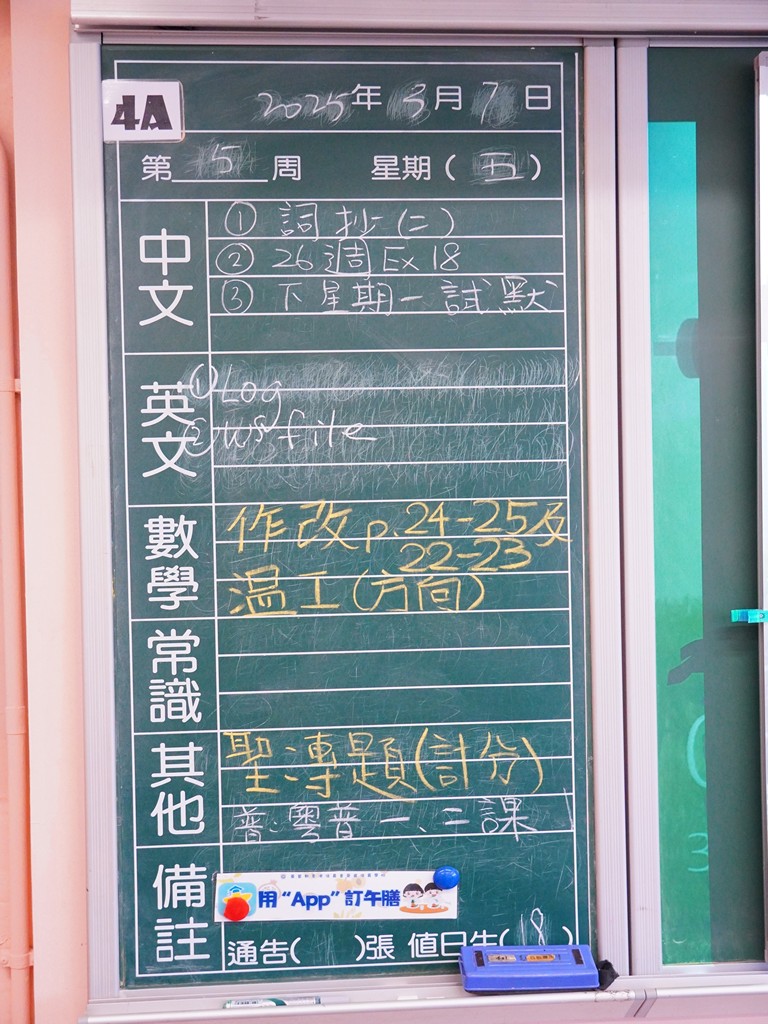 4A
2025年3月7日
第5周 星期(五)
中文
① 詞抄(二)
② 26週 Ex 18
③ 下星期一試默
英文
① Log
② ws file
數學
作改 p.24-25及
22-23
溫工(方向)
常識
其他
聖專題(計分)
普:粵普一、二課
備註
用“App”訂午膳
通告( )張 值日生(18)